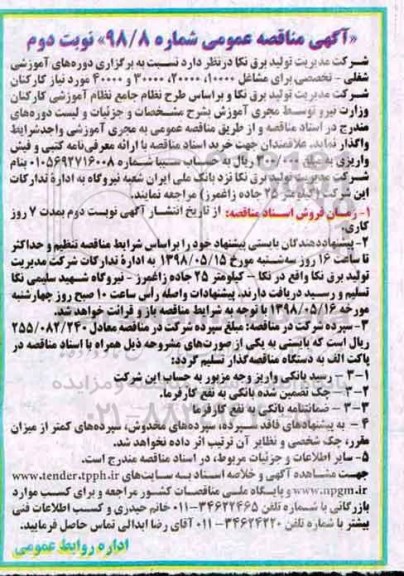 «آگهی مناقصه عمومی شماره ۹۸/۸» نوبت دوم
شرکت مدیریت تولید برق نکا در نظر دارد نسبت به برگزاری دوره‌های آموزشی
شغلی - تخصصی برای مشاغل ۱۰۰۰۰، ۲۰۰۰۰، ۳۰۰۰۰ و ۴۰۰۰۰ مورد نیاز کارکنان
شرکت مدیریت تولید برق نکا و براساس طرح نظام جامع نظام آموزشی کارکنان
وزارت نیرو توسط مجری آموزش بشرح مشخصات و جزئیات و لیست دوره‌های
مندرج در اسناد مناقصه و از طریق مناقصه عمومی به مجری آموزشی واجدشرایط
واگذار نماید. علاقمندان جهت خرید اسناد مناقصه با ارائه معرفی‌نامه کتبی و فیش
واریزی به مبلغ ریال به حساب سیبا شماره ۰۱۰۵۶۹۲۷۱۶۰۰۸ بنام
شرکت مدیریت تولید برق نکا نزد بانک ملی ایران شعبه نیروگاه به ادارۀ تدارکات
این شرکت (کیلومتر ۲۵ جاده زاغمرز) مراجعه نمایند.
۱- زمان فروش اسناد مناقصه: از تاریخ انتشار آگهی نوبت دوم بمدت ۷ روز
کاری.
۲- پیشنهاددهندگان بایستی پیشنهاد خود را براساس شرایط مناقصه تنظیم و حداکثر
تا ساعت ۱۶ روز سه‌شنبه مورخ ۱۳۹۸/۰۵/۱۵ به ادارۀ تدارکات شرکت مدیریت
تولید برق نکا واقع در نکا - کیلومتر ۲۵ جاده زاغمرز - نیروگاه شهید سلیمی نکا
تسلیم و رسید دریافت دارند. پیشنهادات واصله رأس ساعت ۱۰ صبح روز چهارشنبه
مورخه ۱۳۹۸/۰۵/۱۶ با توجه به شرایط مناقصه باز و قرائت خواهد شد.
۳- سپرده شرکت در مناقصه: مبلغ سپرده شرکت در مناقصه معادل ۲۵۵/۰۸۲/۲۴۰
ریال است که بایستی به یکی از صورت‌های مشروحه ذیل همراه با اسناد مناقصه در
پاکت الف به دستگاه مناقصه‌گذار تسلیم گردد:
۱-۳ - رسید بانکی واریز وجه مزبور به حساب این شرکت
۲-۳ - چک تضمین شده بانکی به نفع کارفرما.
۳-۳ - ضمانتنامه بانکی به نفع کارفرما
۴ - به پیشنهادهای فاقد سپرده، سپرده‌های مخدوش، سپرده‌های کمتر از میزان
مقرر، چک شخصی و نظایر آن ترتیب اثر داده نخواهد شد.
۵- سایر اطلاعات و جزئیات مربوط، در اسناد مناقصه مندرج است.
جهت مشاهده آگهی و خلاصه اسناد به سایت‌های www.tender.tpph.ir
www.npgm.ir و پایگاه ملی مناقصات کشور مراجعه و برای کسب موارد
بازرگانی با شماره تلفن ۳۴۶۲۲۴۶۵-۰۱۱ خانم حیدری و کسب اطلاعات فنی
بیشتر با شماره تلفن ۳۴۶۲۴۲۲۰-۰۱۱ آقای رضا ابدالی تماس حاصل فرمایید.
اداره روابط عمومی